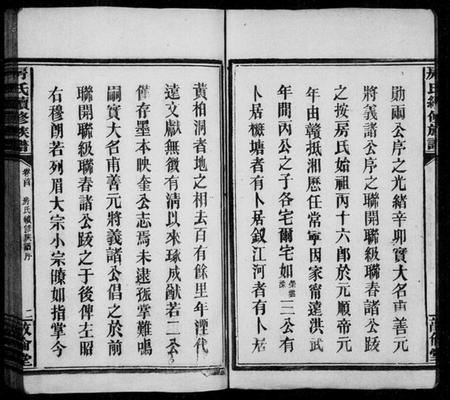 勛兩公序之光緒辛卯實大名甫善元
將義諸公序之聯開聯級聯春諸公跋
之按房氏始祖丙十六郎於元順帝元
年由贛抵湘歷任常寧因家甯遠洪武
年間丙公之子各宅爾宅如 三公有
卜居欓塘者有卜居釵江河者有卜居
黃柏洞者地之相去百有餘里年湮代
遠文獻無徵有清以來琢成猷若二公
僅存墨本映奎公志焉未逮孤掌難鳴
嗣實大名甫善元將義諸公倡之於前
聯開聯級聯春諸公跋之于後俾左昭
右穆朗若列眉大宗小宗瞭如指掌今
房氏續修族譜
卷首
房氏續修族譜序
二
敦倫堂